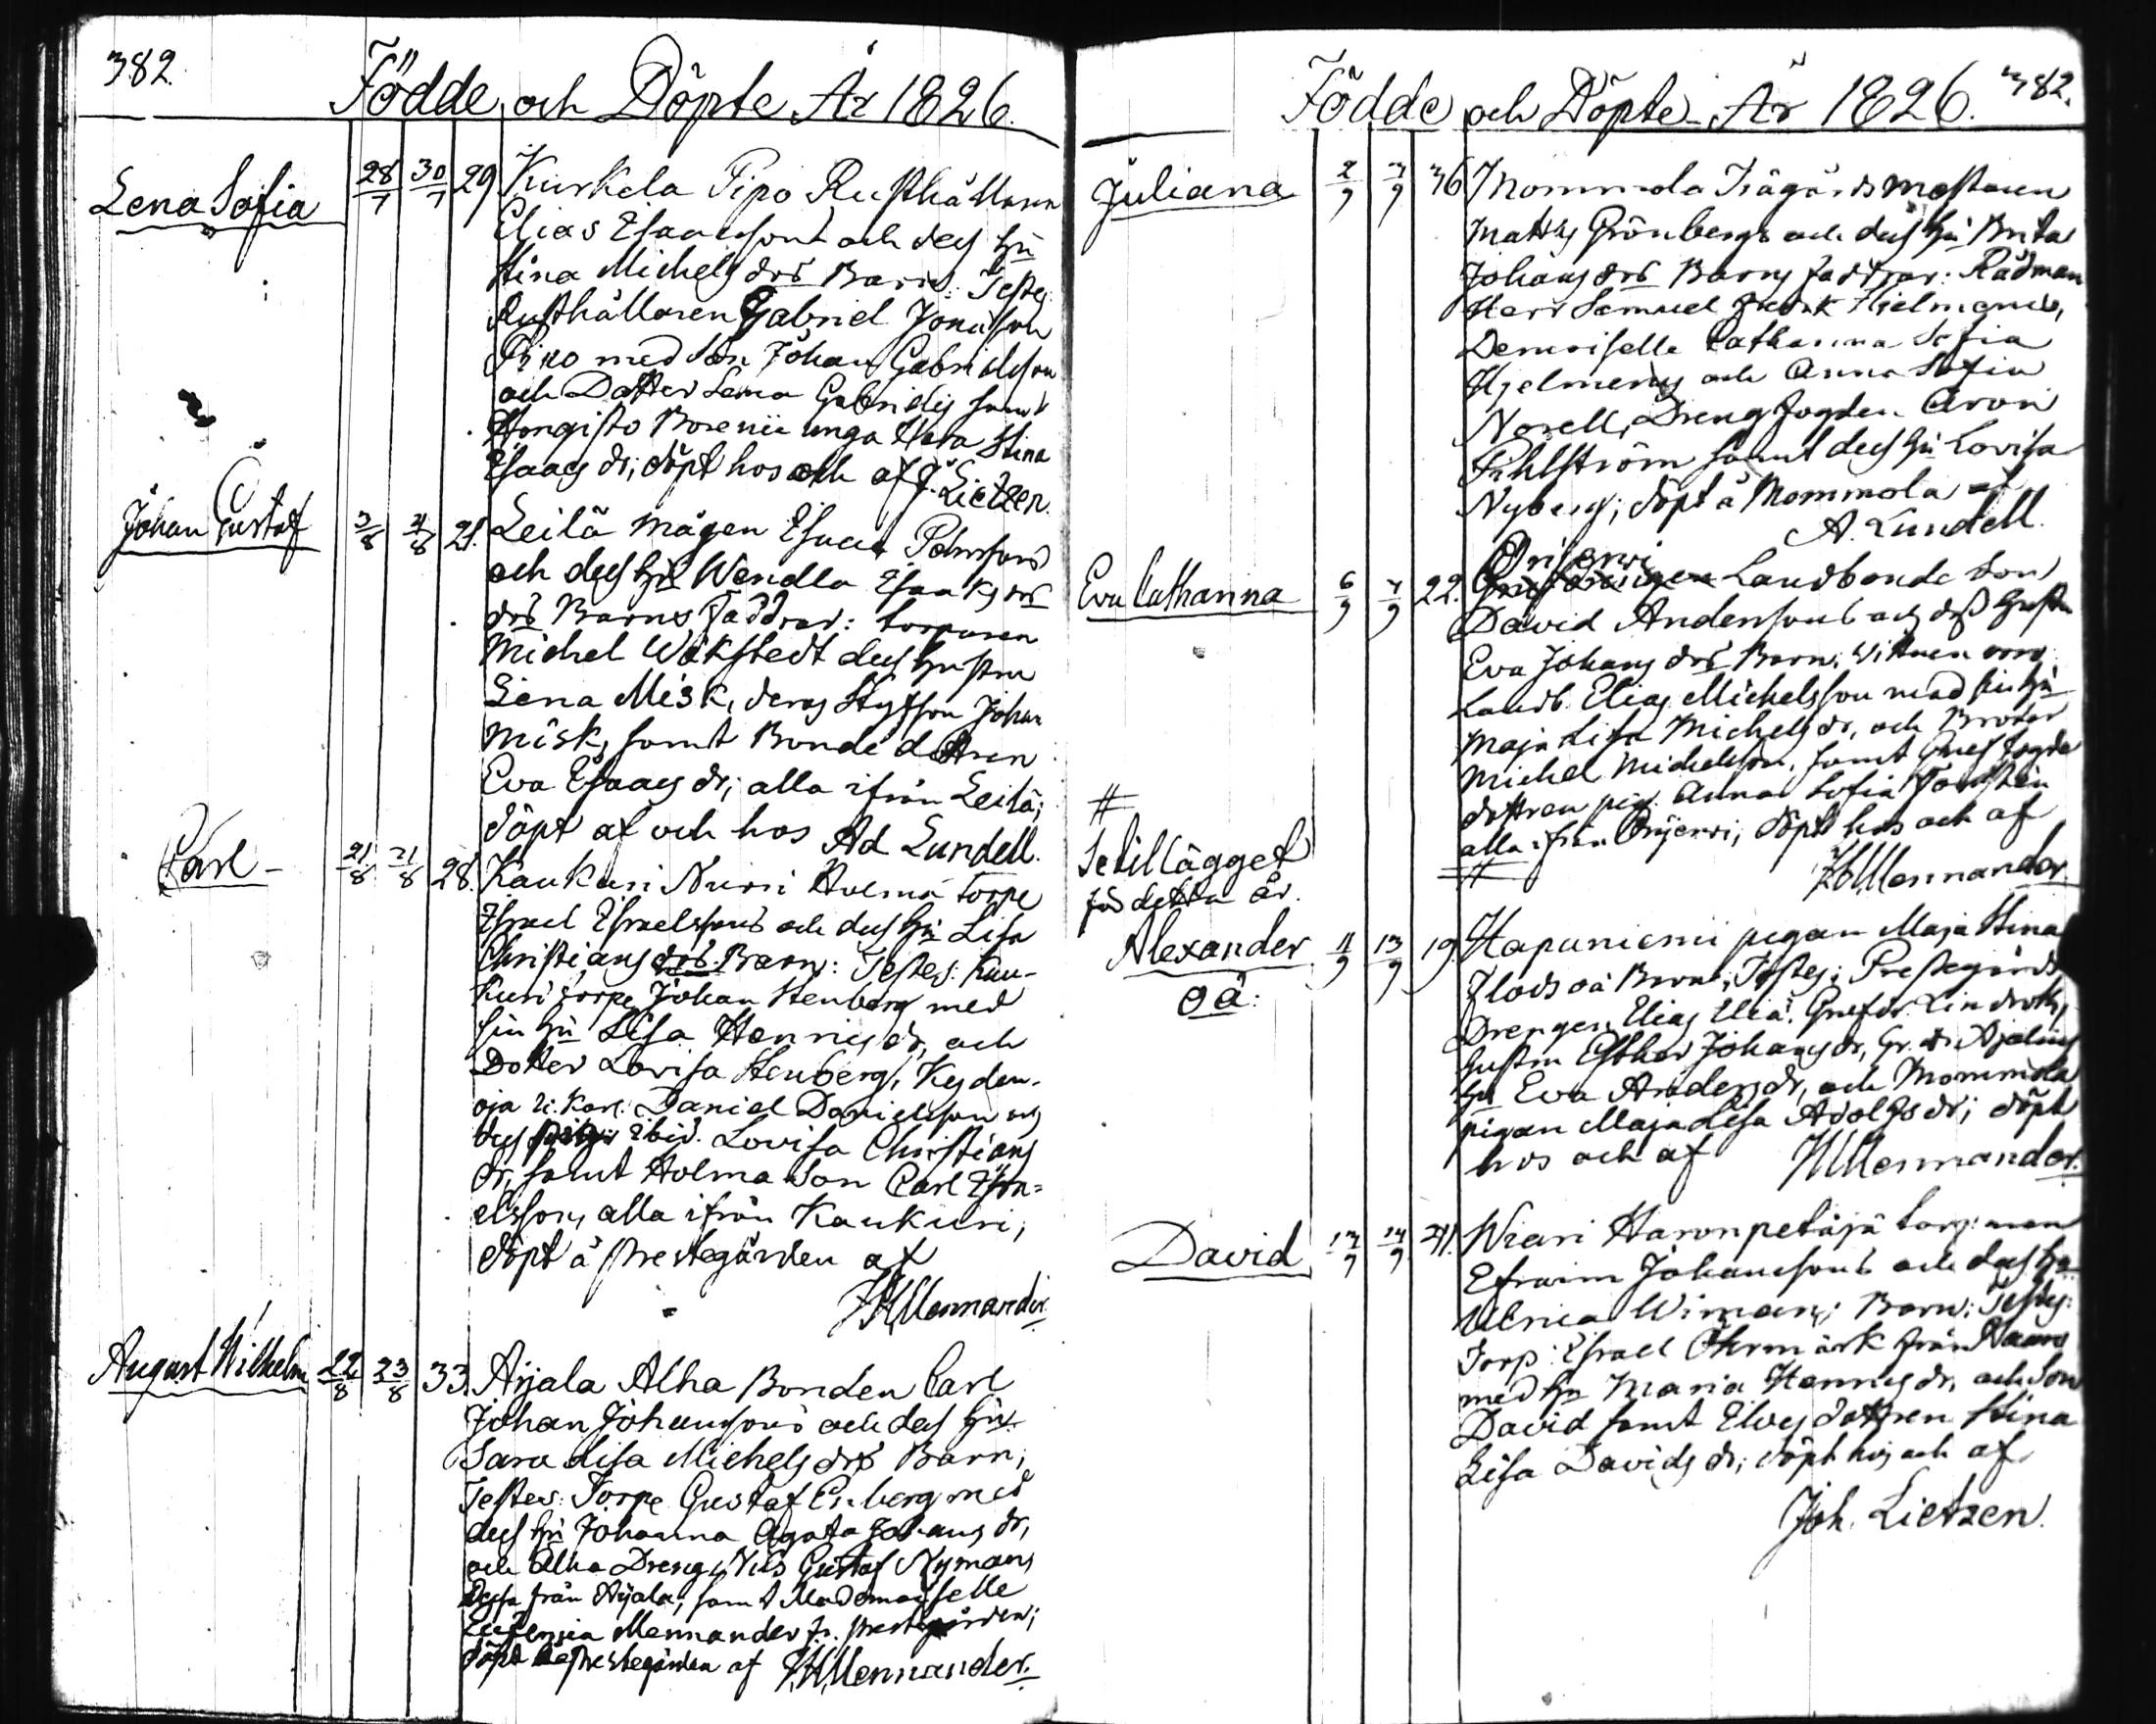 382.
Födde och Döpte År 1826.
Lena Sofia 28/7 30/7 29 Kurkela Pipo Rusthållaren
Elias Esaacssons och dess Hu
Stina Michelsdrs Barn: Testes:
Rusthållaren Gabriel Jonasson
Pipo med Son Johan Gabrielsson
och Dotter Lena Gabrielsdr samt
Hongisto unga Stina
Esaacs dr; döpt hos och af J. Lietzen.
Johan Gustaf 3/8 4/8 21. Leilä Mågen Esaac
och dess Hu Wendla Esaaks
drs Barns Faddrar: torparen
Michel Wikstedt dess Hustru
Lena Misk, deras Styfson Johan
Misk, samt Bonde dottren
Eva Esaacs dr; alla ifrån Leilä;
döpt af och hos Ad Lundell.
Carl 21/8 21/8 28. Kaukuri Nurri Holma torpe
Israel Israelssons och dess Hu Lisa
Christiansdrs Barn: Testes: Kau-
kuri torpe Johan Stenberg med
sin Hu Lisa Henricsdr, och
Dotter Lovisa Stenberg, Keyden-
oja Daniel Danielsson och
dess ibid. Lovisa Christians
dr, samt Holma Son Carl Isra=
elsson, alla ifrån Kaukuri;
döpt å Prestegården af
JHMennander.
August Wilhelm 22/8 23/8 33. Äijälä Alha Bonden Carl
Johan Johanssons och dess Hu
Sara Lisa Michelsdrs Barn;
Testes: Torpe Gustaf Enberg med
dess Hu Johanna Agata Johansdr,
och Alha Dreng Nils Gustaf Nyman,
dessa från Äijälä, samt Mademoiselle
Mennander fr. Prestgården;
döpt å Prestegården af JHMennander.
Födde och Döpte År 1826. 382.
Juliana 2/9 3/9 36 Mommola Trägårdsmästaren
Matts Grönbergs och dess Hu Brita
Johansdrs Barns faddrar: Rådman
Herr Samuel Hjelmerus,
Demoiselle Catharina Sofia
Hjelmerus och Anna Sofia
Norell, Drengfogden Aron
Fihlström samt dess Hu Lovisa
Nyberg; döpt å Mommola af
A. Lundell.
Eva Catharina 6/9 7/9 22. Landbonde Son
David Anderssons och dess Hustru
Eva Johansdrs Barn. Vittnen voro:
Landb. Elias Michelsson med sin Hu
Maja Lisa Michelsdr, och Broder
Michel Michelsson, samt
dottren pig. Anna Sofia
alla ifrån Orijerwi, döpt hos och af
JHMennander
#
Setillägget
för detta år.
Alexander 11/9 13/9 19 Hapuniemi pigan Maja Stina
oä: Flods oä Barn; Testes: Prestegårds
Drengen Elias Lindroths
Hustru Esther Johansdr,
Hu Eva Andersdr, och Mommola
pigan Maja Lisa Adolfsdr; döpt
hos och af JHMennander.
David 13/9 14/9 41. Wiari Haronpetäjä torp:man
Efraim Johanssons och dess Hu
Ulrica Wimans Barn: Testes:
Torp: Israel från
med Hu Maria Henricsdr, och Son
David samt dottren Stina
Lisa Davids dr; döpt hos och af
Joh. Lietzen.